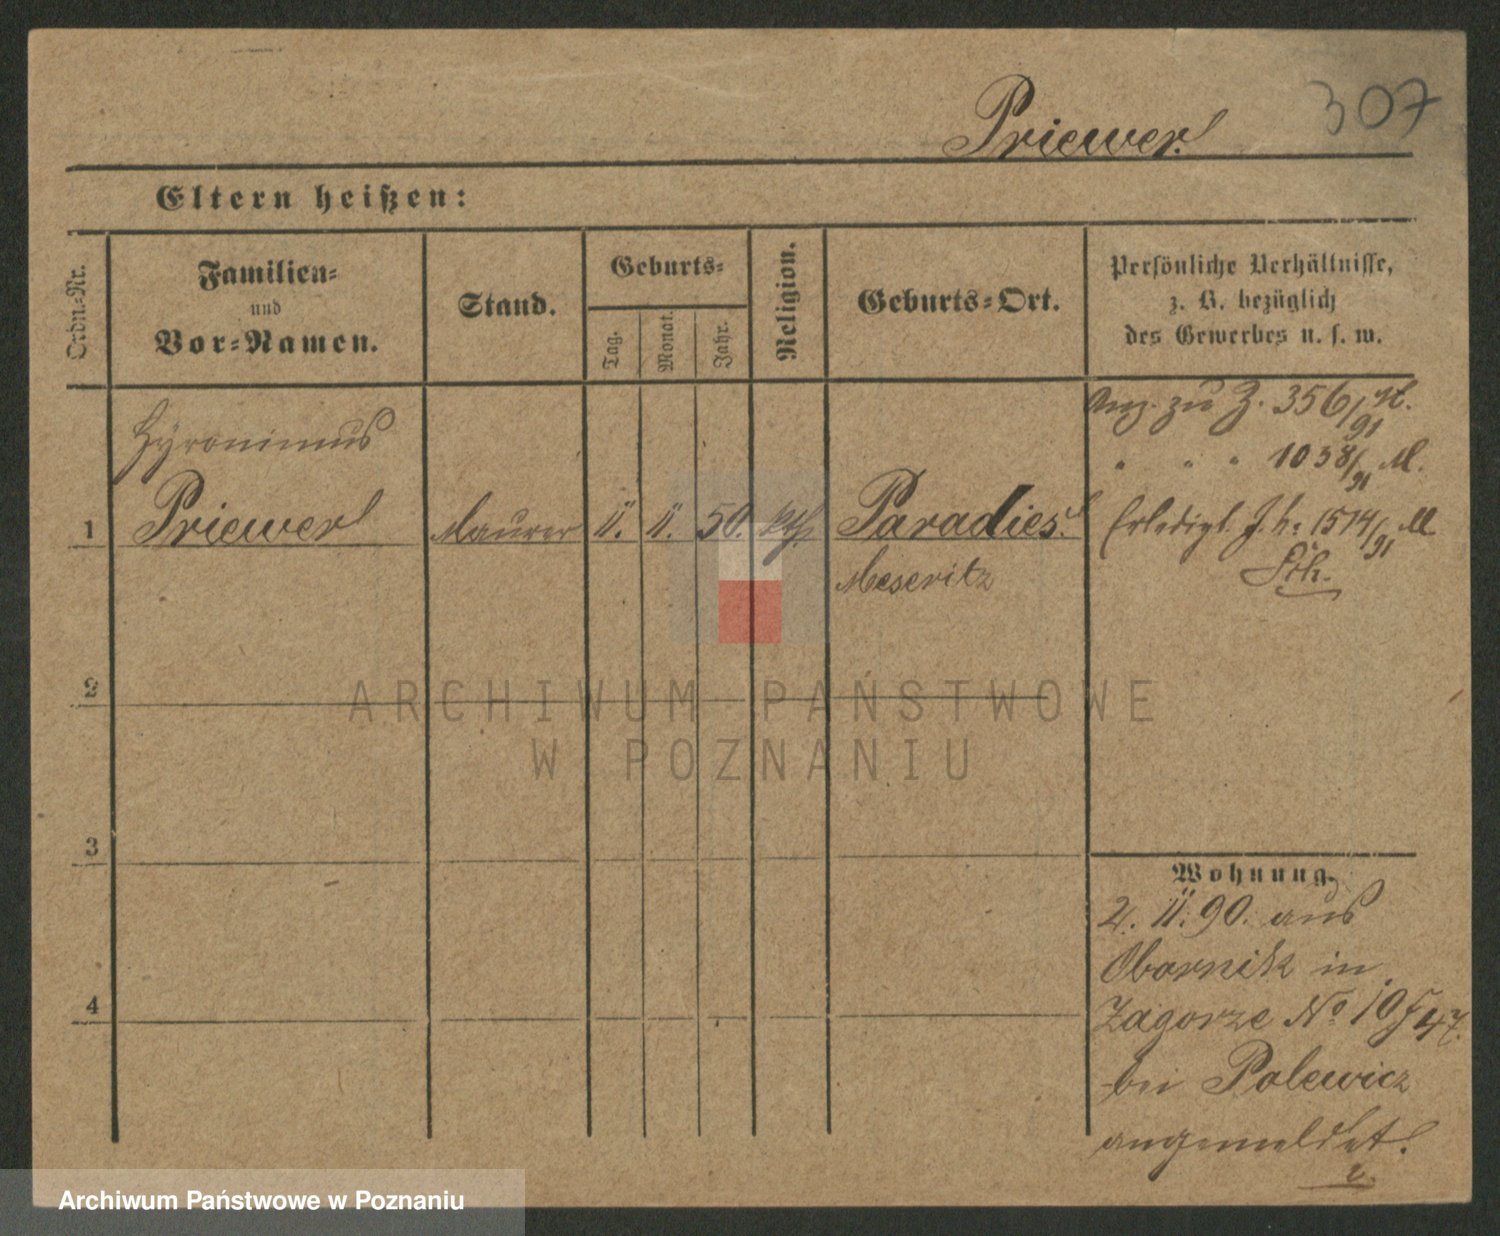 307
Priewer.
Eltern heißen:
Ordn.=Nr.
Familien=
und
Vor=Namen.
Stand.
Geburts=
Tag.
Monat.
Jahr.
Religion.
Geburts=Ort.
Persönliche Verhältnisse,
z. B. bezüglich
des Gewerbes u. s. w.
Hyronimus
1 Priewer Maurer 11. 11. 50. kth. Paradies.
Meseritz
Anz. zu Z. 356/91 M.
" " " 1038/91 M.
Erledigt J. h. 1514/91 M
2
3
4
Wohnung.
2. 11. 90. aus
Obornik in
Zagorze No 10
bei Polewicz
angemeldet.
ARCHIWUM PAŃSTWOWE
W POZNANIU
Archiwum Państwowe w Poznaniu